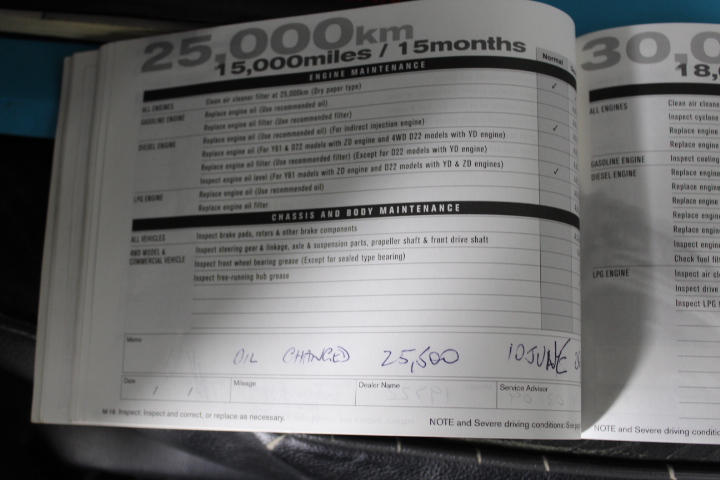 25,000km
15,000miles / 15months
Normal
ENGINE MAINTENANCE
ALL ENGINES Clean air cleaner filter at 25,000km (Dry paper type) ✓
GASOLINE ENGINE Replace engine oil (Use recommended oil)
Replace engine oil filter (Use recommended filter)
DIESEL ENGINE Replace engine oil (Use recommended oil) (For indirect injection engine) ✓
Replace engine oil (For Y61 & D22 models with ZD engine and 4WD D22 models with YD engine)
Replace engine oil filter (Use recommended filter) (Except for D22 models with YD engine)
Inspect engine oil level (For Y61 models with ZD engine and D22 models with YD & ZD engines) ✓
LPG ENGINE Replace engine oil (Use recommended oil)
Replace engine oil filter
CHASSIS AND BODY MAINTENANCE
ALL VEHICLES Inspect brake pads, rotors & other brake components
4WD MODEL & COMMERCIAL VEHICLE Inspect steering gear & linkage, axle & suspension parts, propeller shaft & front drive shaft
Inspect front wheel bearing grease (Except for sealed type bearing)
Inspect free-running hub grease
Memo
OIL CHANGED 25,500 10 JUNE
Date / /
Mileage
Dealer Name
Service Advisor
M-16 Inspect: Inspect and correct, or replace as necessary.
NOTE and Severe driving conditions: See
30,0
18,
ALL ENGINES Clean air cleane
Inspect cyclone
Replace engine
Replace engine
GASOLINE ENGINE Inspect cooling
DIESEL ENGINE Replace engine
Replace engine
Replace engine
Replace engine
Replace engine
Inspect engine
Check fuel filt
LPG ENGINE Inspect air cl
Inspect drive
Inspect LPG
NOTE and Severe driving conditio